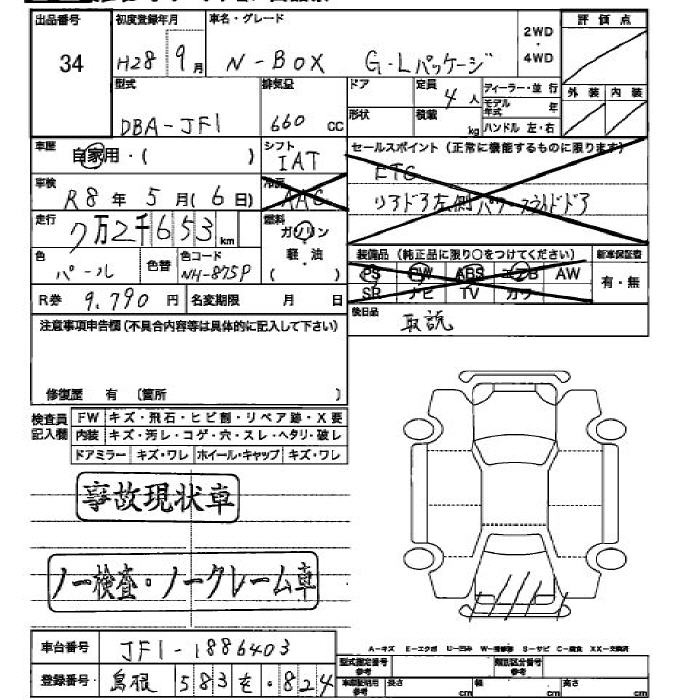 出品番号 初度登録年月 車名・グレード 2WD・4WD 評価点
34 H28 9月 N-BOX G-Lパッケージ
型式 排気量 ドア 定員 4人 ディーラー・並行 外装 内装
DBA-JF1 660cc 形状 積載 kg モデル年式 年
ハンドル 左・右
車歴 自家用・( ) シフト IAT セールスポイント(正常に機能するものに限ります)
ETC
車検 R8年5月(6日) 冷房 AAC リアドア左側パワースライドドア
走行 7万2千653km 燃料 ガソリン
軽・油
( )
色 パール 色替 色コード NH-875P 装備品(純正品に限り○をつけてください) 新車保証書
PS PW ABS エアB AW 有・無
SR ナビ TV カワ
R券 9,790円 名変期限 月 日 後日品 取説
注意事項申告欄(不具合内容等は具体的に記入して下さい)
修復歴 有 〔箇所 〕
検査員記入欄 FW キズ・飛石・ヒビ割・リペア跡・X要
内装 キズ・汚レ・コゲ・穴・スレ・ヘタリ・破レ
ドアミラー キズ・ワレ ホイール・キャップ キズ・ワレ
事故現状車
ノー検査・ノークレーム車
A-キズ E-エクボ U-凹み W-補修跡 S-サビ C-腐食 XX-交換済
車台番号 JF1-1886403 型式指定番号 参考 類別区分番号 参考
登録番号 島根 583 を・824 車庫証明用 参考 長さ cm 幅 cm 高さ cm